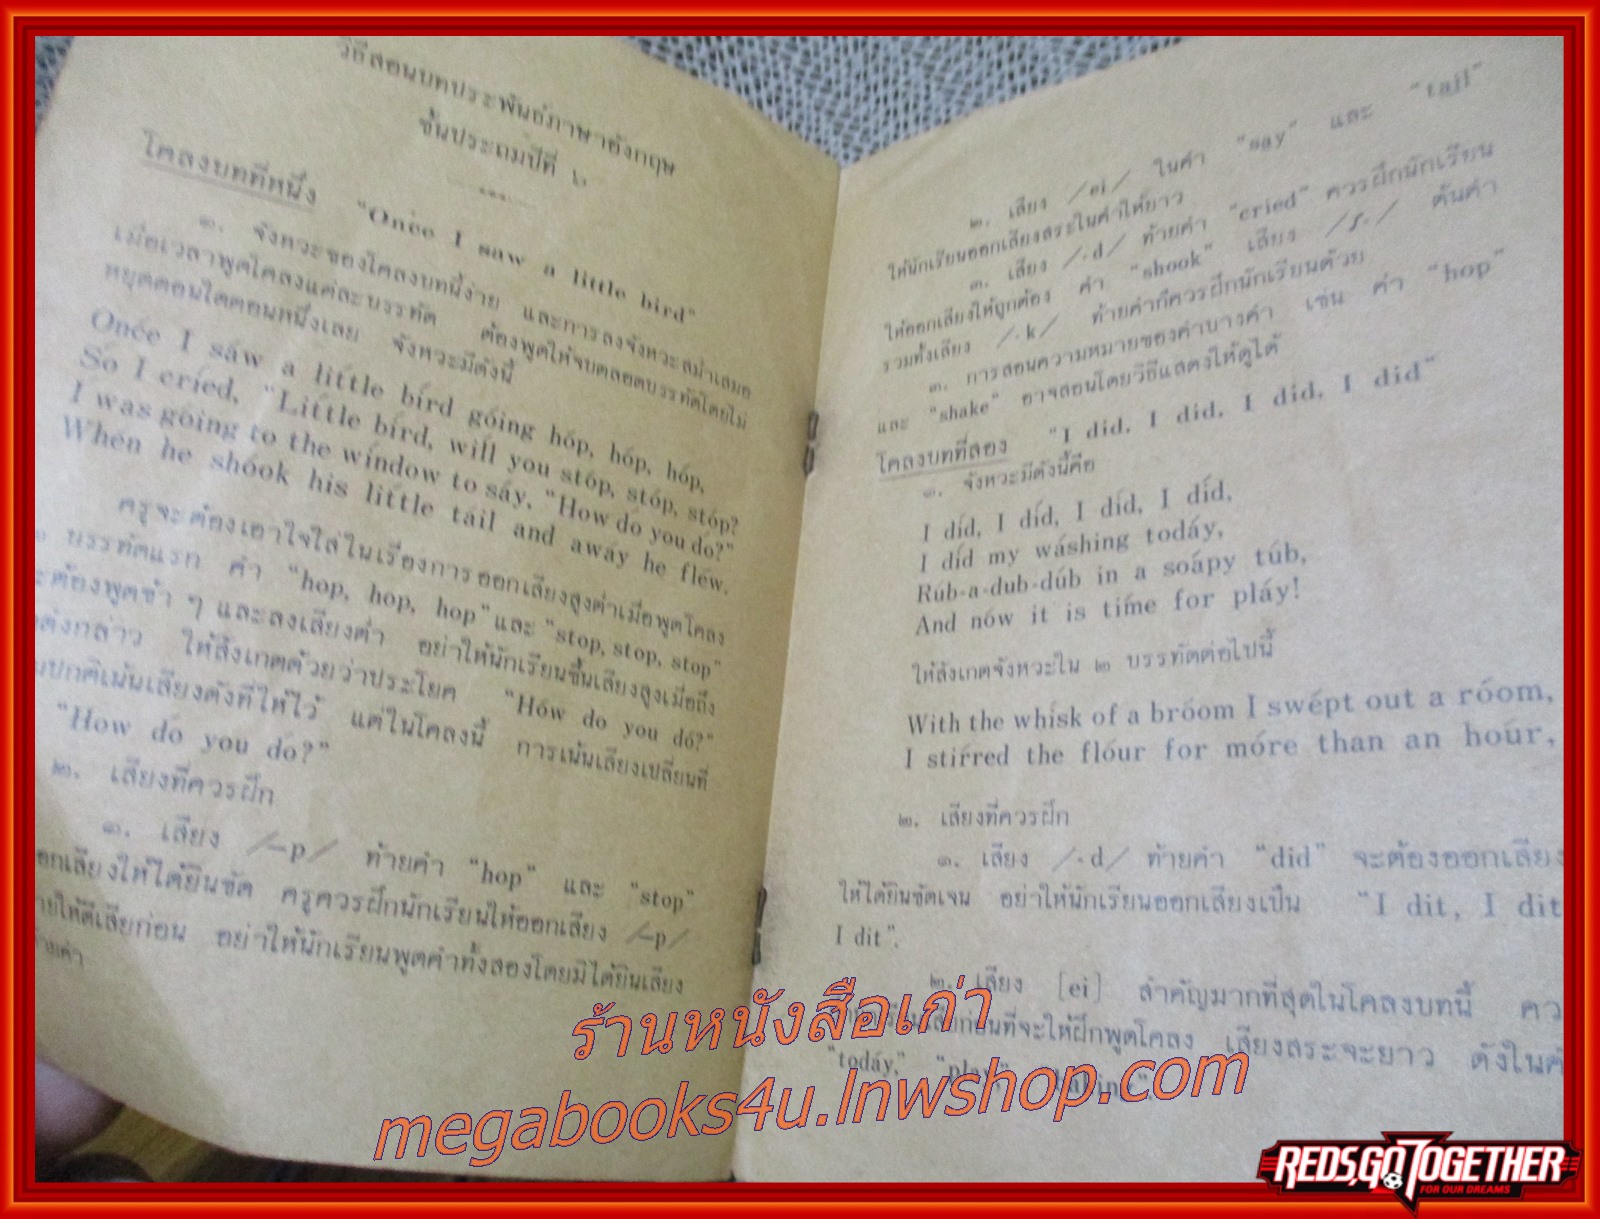 วิธีสอนบทประพันธ์ภาษาอังกฤษ
ชั้นประถมปีที่ ๖
โคลงบทที่หนึ่ง "Once I saw a little bird"
๑. จังหวะของโคลงบทนี้ง่าย และการลงจังหวะสม่ำเสมอ
เมื่อเวลาพูดโคลงแต่ละบรรทัด ต้องพูดให้จบตลอดบรรทัดโดยไม่
หยุดตอนใดตอนหนึ่งเลย จังหวะมีดังนี้
Ońce I sáw a líttle bírd góing hóp, hóp, hóp,
So I críed, "Líttle bírd, wíll you stóp, stóp, stóp?
I was góing to the wíndow to sáy, "How do you dó?"
Whén he shóok his líttle táil and awáy he fléw.
ครูจะต้องเอาใจใส่ในเรื่องการออกเสียงสูงต่ำเมื่อพูดโคลง
๒ บรรทัดแรก คำ "hop, hop, hop" และ "stop, stop, stop"
ะต้องพูดซ้ำ ๆ และลงเสียงต่ำ อย่าให้นักเรียนขึ้นเสียงสูงเมื่อถึง
ดังกล่าว ให้สังเกตด้วยว่าประโยค "Hów do you dó?"
ปกติเน้นเสียงดังที่ให้ไว้ แต่ในโคลงนี้ การเน้นเสียงเปลี่ยนที่
"How do you dó?"
๒. เสียงที่ควรฝึก
๑. เสียง /–p/ ท้ายคำ "hop" และ "stop"
อกเสียงให้ได้ยินชัด ครูควรฝึกนักเรียนให้ออกเสียง /–p/
ายให้ดีเสียก่อน อย่าให้นักเรียนพูดคำทั้งสองโดยมิได้ยินเสียง
ท้ายคำ
๒. เสียง /ei/ ในคำ "say" และ "tail"
ให้นักเรียนออกเสียงสระในคำให้ยาว
๓. เสียง /-d/ ท้ายคำ "cried" ควรฝึกนักเรียน
ให้ออกเสียงให้ถูกต้อง คำ "shook" เสียง /ʃ-/ ต้นคำ
รวมทั้งเสียง /-k/ ท้ายคำก็ควรฝึกนักเรียนด้วย
๓. การสอนความหมายของคำบางคำ เช่น คำ "hop"
และ "shake" อาจสอนโดยวิธีแสดงให้ดูได้
โคลงบทที่สอง "I did, I did, I did, I did"
๑. จังหวะมีดังนี้คือ
I díd, I díd, I díd, I díd,
I díd my wáshing todáy,
Rúb-a-dub-dúb in a soápy túb,
And nów it is tíme for pláy!
ให้สังเกตจังหวะใน ๒ บรรทัดต่อไปนี้
With the whísk of a bróom I swépt out a róom,
I stírred the flóur for móre than an hoúr,
๒. เสียงที่ควรฝึก
๑. เสียง /-d/ ท้ายคำ "did" จะต้องออกเสียง
ให้ได้ยินชัดเจน อย่าให้นักเรียนออกเสียงเป็น "I dit, I dit
I dit".
๒. เสียง [ei] สำคัญมากที่สุดในโคลงบทนี้ คว
ก่อนที่จะให้ฝึกพูดโคลง เสียงสระจะยาว ดังในคำ
"todáy," "play,"
ร้านหนังสือเก่า
megabooks4u.lnwshop.com
REDS,GO TOGETHER
FOR OUR DREAMS